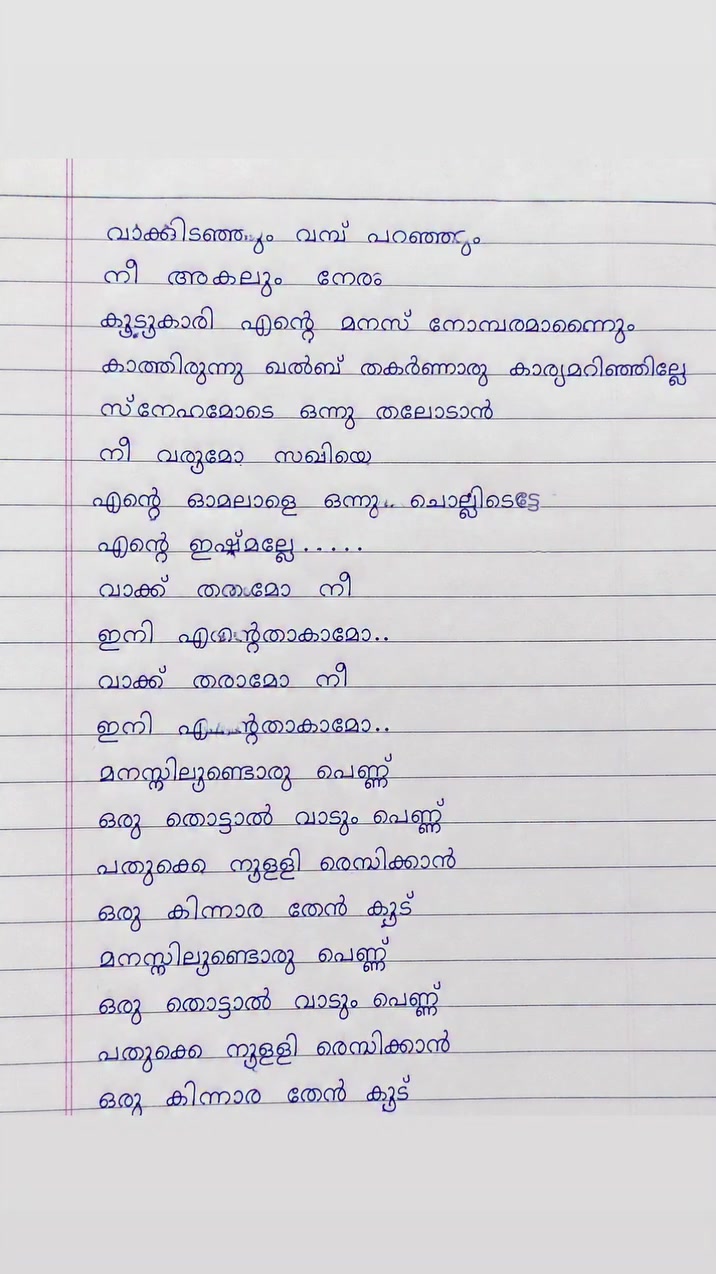 വാക്കിടഞ്ഞും വമ്പ് പറഞ്ഞും
നീ അകലും നേരം
കൂട്ടുകാരി എന്റെ മനസ് നോമ്പരമാണെന്നും
കാത്തിരുന്നു ഖൽബ് തകർണാരു കാര്യമറിഞ്ഞില്ലേ
സ്നേഹമോടെ ഒന്നു തലോടാൻ
നീ വരുമോ സഖിയെ
എന്റെ ഓമലാളെ ഒന്നു.. ചൊല്ലിടെട്ടേ
എന്റെ ഇഷ്ടമല്ലേ.....
വാക്ക് തരാമോ നീ
ഇനി എന്റേതാകാമോ..
വാക്ക് തരാമോ നീ
ഇനി താകാമോ..
മനസ്സിലുണ്ടൊരു പെണ്ണ്
ഒരു തൊട്ടാൽ വാടും പെണ്ണ്
പതുക്കെ നുള്ളി രെസിക്കാൻ
ഒരു കിന്നാര തേൻ കൂട്
മനസ്സിലുണ്ടൊരു പെണ്ണ്
ഒരു തൊട്ടാൽ വാടും പെണ്ണ്
പതുക്കെ നുള്ളി രെസിക്കാൻ
ഒരു കിന്നാര തേൻ കൂട്